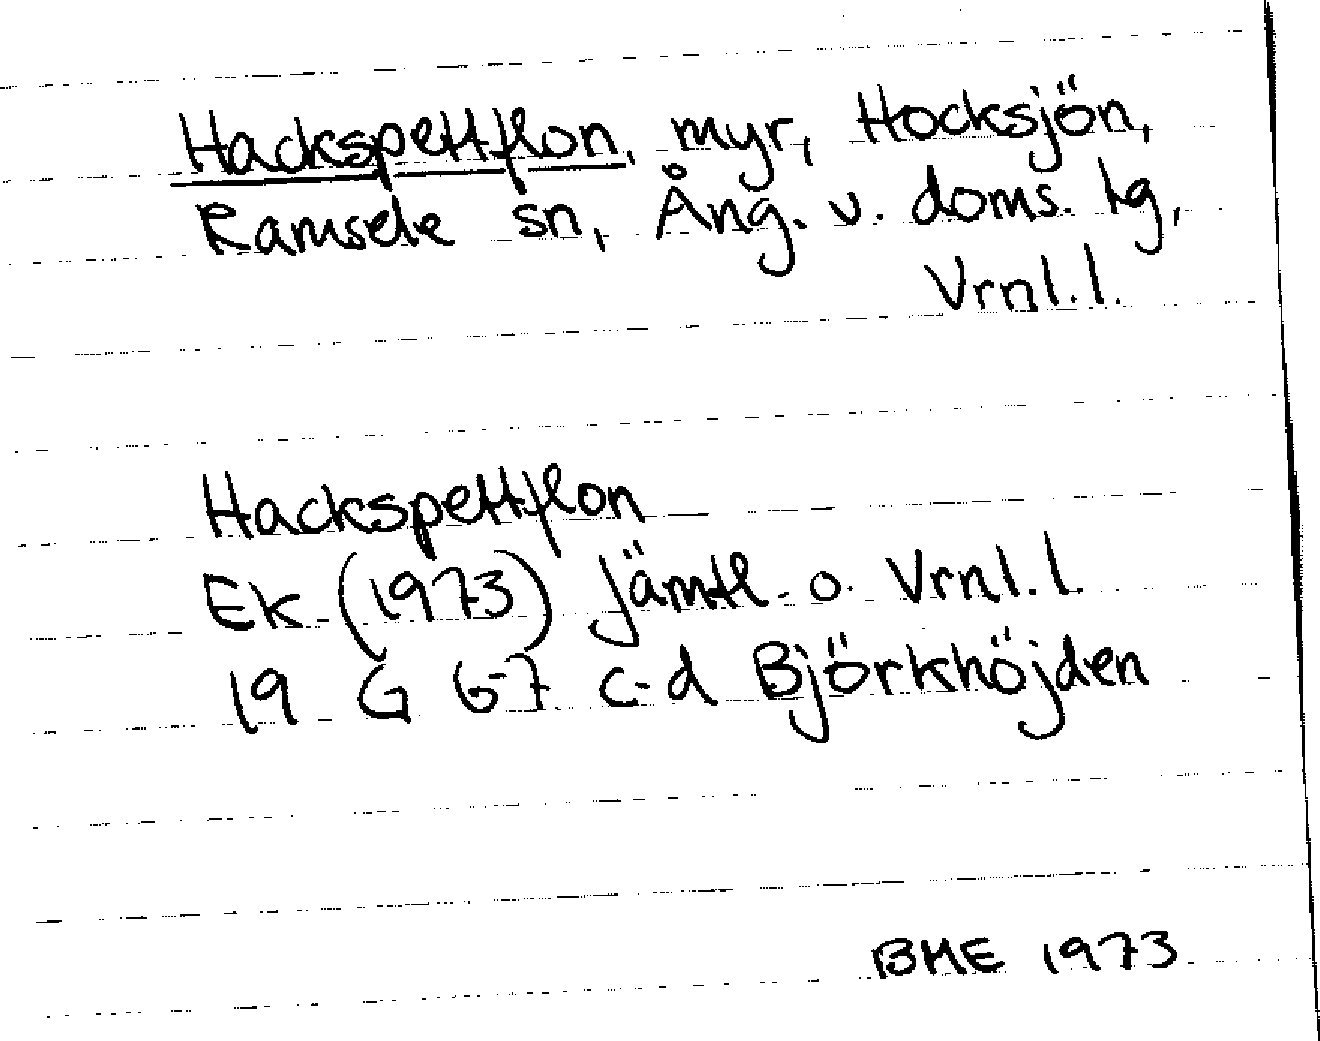 Hackspettflon, myr, Hocksjön,
Ramsele sn, Ång. v. doms. lg,
Vrnl.l.
Hackspettflon
Ek (1973) Jämtl. o. Vrnl.l.
19 G 6-7 c-d Björkhöjden
BME 1973